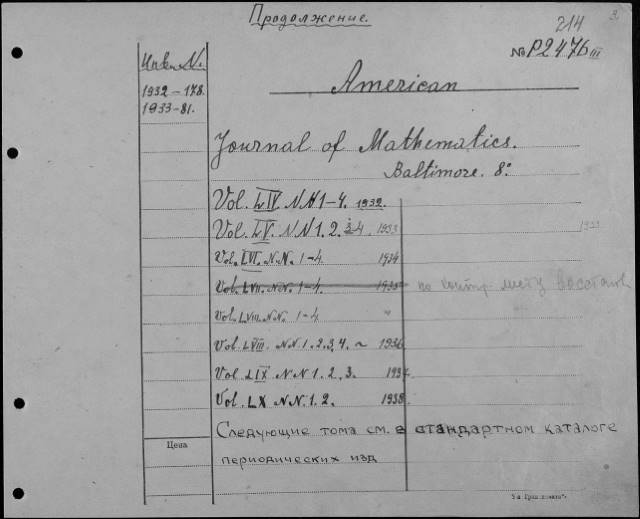 Продолжение.
214
3.
№ P2476 III
Инв. N.
1932-178.
1933-81.
American
Journal of Mathematics.
Baltimore. 8°.
Vol. LIV. N.N 1-4. 1932.
Vol. LV. N N 1. 2. 3-4. 1933
1933
Vol. LVI. N.N. 1-4 1934
Vol. LVII. N.N. 1-4. 1935 по контр. листу восстанов
Vol. LVIII. N.N. 1-4 "
Vol. LVIII. N.N 1. 2. 3. 4. ~ 1936
Vol. LIX N N 1. 2. 3. 1937.
Vol. LX N N. 1. 2. 1938.
Следующие тома см. в стандартном каталоге
периодических изд
Цена